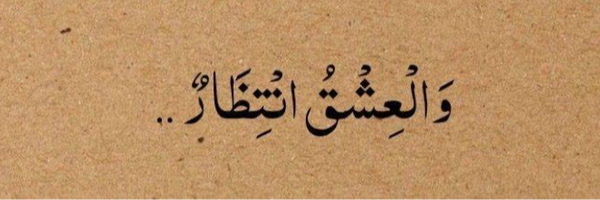 وَالْعِشْقُ انْتِظَارٌ ..